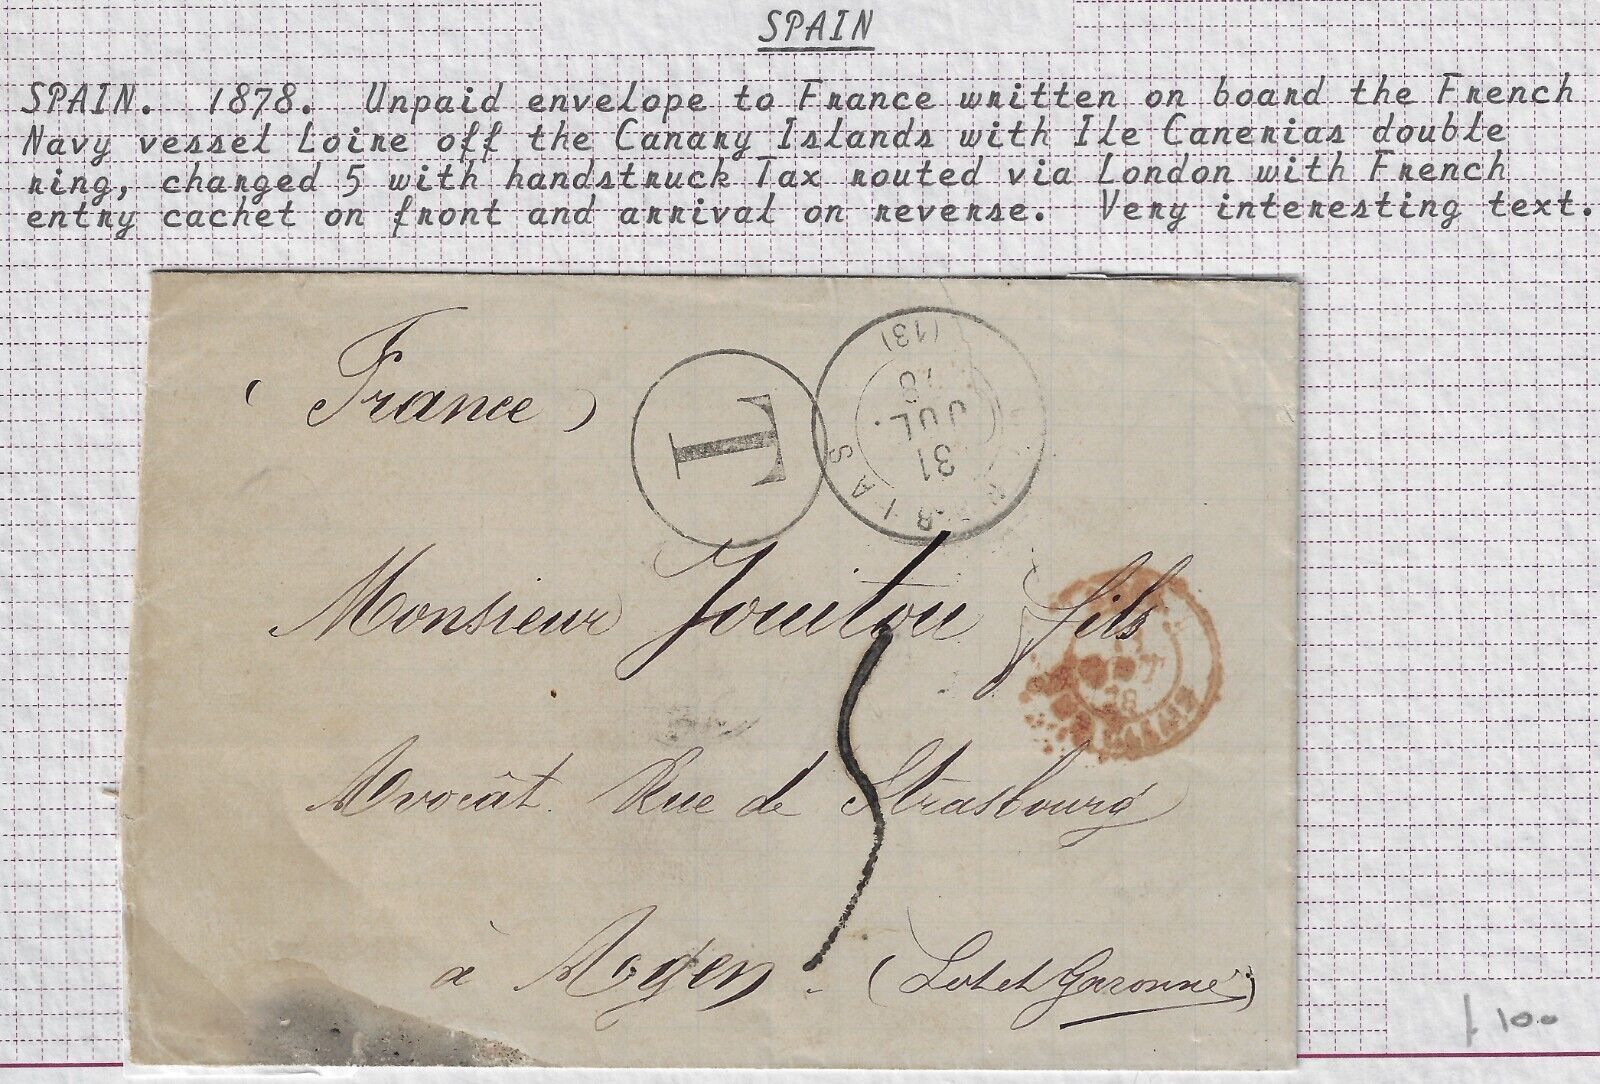 SPAIN
SPAIN. 1878. Unpaid envelope to France written on board the French
Navy vessel Loire off the Canary Islands with Ile Canerias double
ring, charged 5 with handstruck Tax routed via London with French
entry cachet on front and arrival on reverse. Very interesting text.
(France)
T
(13)
78
JUL.
31
RIAS
Monsieur Jouitou fils
5
78
Avocât Rue de Strasbourg
à Agen - (Lot et Garonne)
£ 100